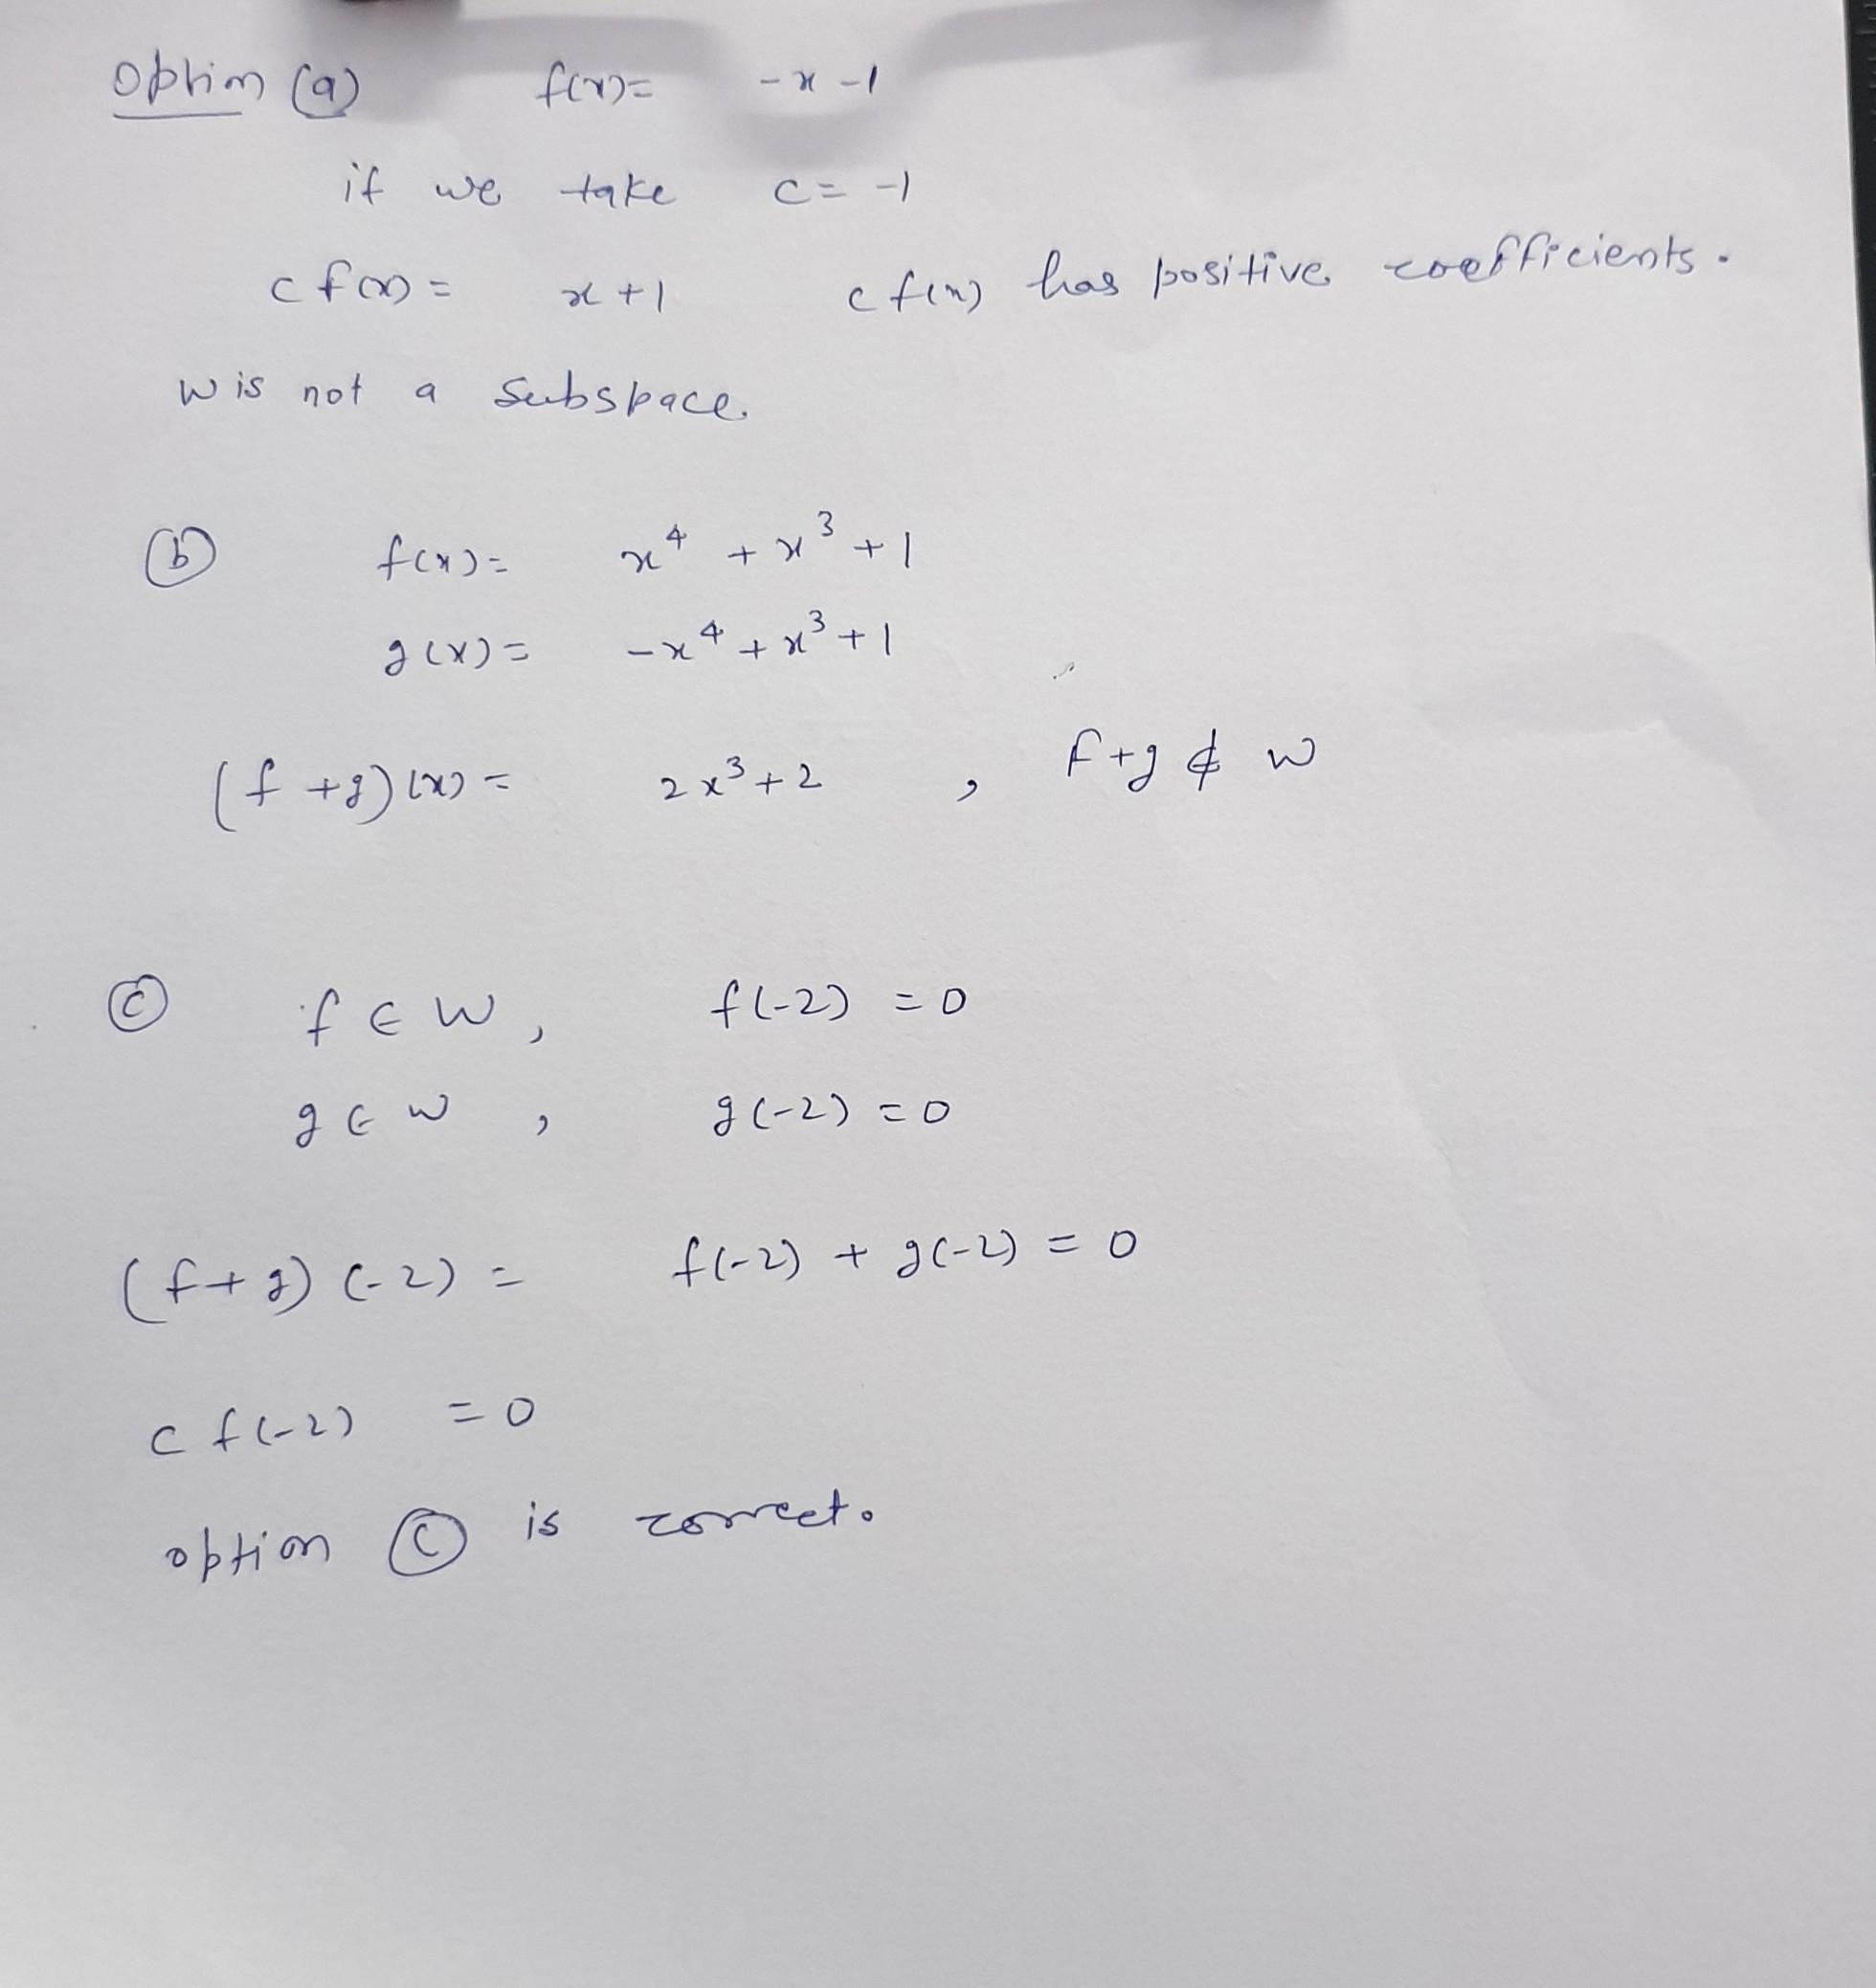 Option (a) f(x) = -x-1
if we take c = -1
c f(x) = x+1 c f(x) has positive coefficients.
W is not a subspace.
(b) f(x) = x⁴ + x³ + 1
g(x) = -x⁴ + x³ + 1
(f+g)(x) = 2x³+2 , f+g ∉ W
(c) f ∈ W, f(-2) = 0
g ∈ W , g(-2) = 0
(f+g)(-2) = f(-2) + g(-2) = 0
c f(-2) = 0
option (c) is correct.